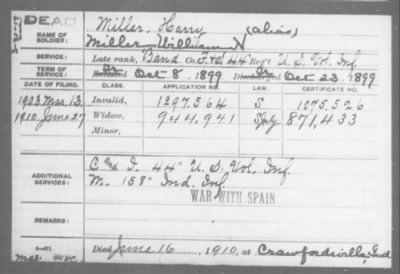 DEAD
NAME OF SOLDIER:
Miller, Harry (alias)
Miller William N
SERVICE:
Late rank, Band Co. F. & C. 44 Reg't U. S. Vol. Inf.
TERM OF SERVICE:
Enlisted Oct 8, 1899 Discharged Oct 23, 1899
DATE OF FILING. CLASS. APPLICATION NO. LAW. CERTIFICATE NO.
1903 Mar. 13. Invalid, 1297,564 S 1075,526
1910 June 27 Widow, 944,941 871,433
Minor,
ADDITIONAL SERVICES:
I. 44" U. S. Vol. Inf.
M. 158" Ind. Inf.
WAR WITH SPAIN
REMARKS:
Died June 16, 1910, at Crawfordsville, Ind